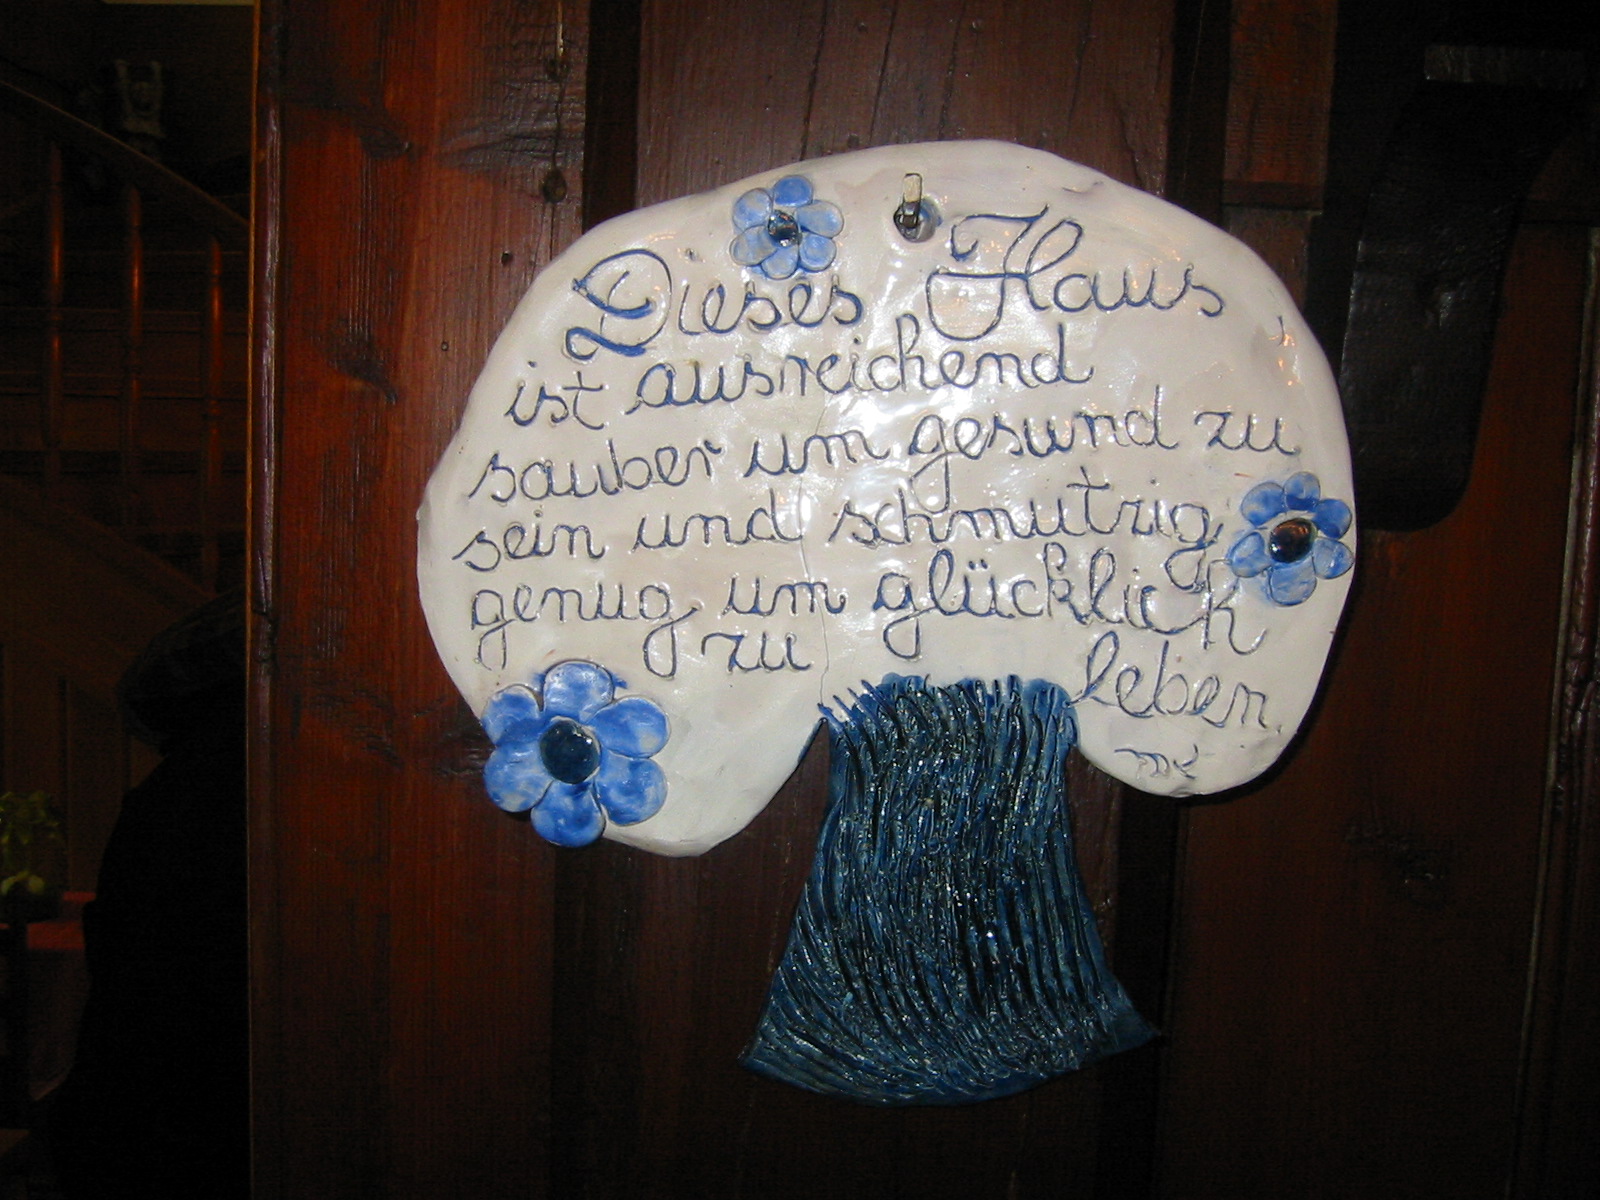 Dieses Haus
ist ausreichend
sauber um gesund zu
sein und schmutzig
genug um glücklich
zu leben.